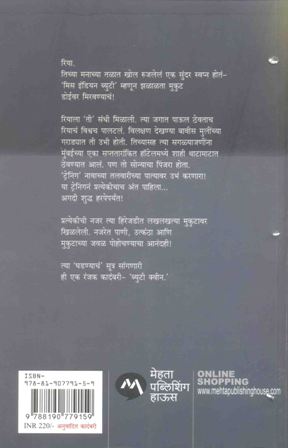 रिया.
तिच्या मनाच्या तळात खोल रुजलेलं एक सुंदर स्वप्न होतं–
'मिस इंडियन ब्युटी' म्हणून झळाळता मुकुट
डोईवर मिरवण्याचं!
रियाला 'ती' संधी मिळाली. त्या जगात पाऊल ठेवताच
रियाचं विश्वच पालटलं. विलक्षण देखण्या बावीस मुलींच्या
गराड्यात ती उभी होती. तिच्यासह त्या सगळ्याजणींना
मुंबईच्या एका सप्ततारांकित हॉटेलमध्ये शाही थाटामाटात
ठेवण्यात आलं. पण तो सोन्याचा पिंजरा होता.
'ट्रेनिंग' नावाच्या तलवारीच्या पात्यावर उभं करणारा!
या ट्रेनिंगनं प्रत्येकीचाच अंत पाहिला...
अगदी शुद्ध हरपेपर्यंत!
प्रत्येकीची नजर त्या हिरेजडीत लखलखत्या मुकुटावर
खिळलेली. नजरेत पाणी, उत्कंठा आणि
मुकुटाच्या जवळ पोहोचण्याचा आनंदही!
त्या 'घडण्याचं' सूत्र सांगणारी
ही एक रंजक कादंबरी– 'ब्युटी क्वीन.'
ISBN-
978-81-907791-5-9
9 788190 779159
INR 220/- अनुवादित कादंबरी
मेहता
पब्लिशिंग
हाऊस
ONLINE
SHOPPING
www.mehtapublishinghouse.com